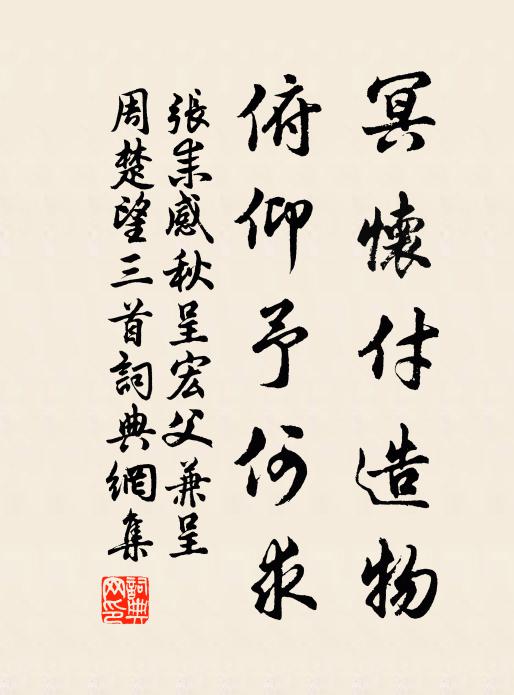 冥懷付造物
俯仰予何求
張耒感秋呈宏父兼呈
周楚望三首詞典網集
詞典網印